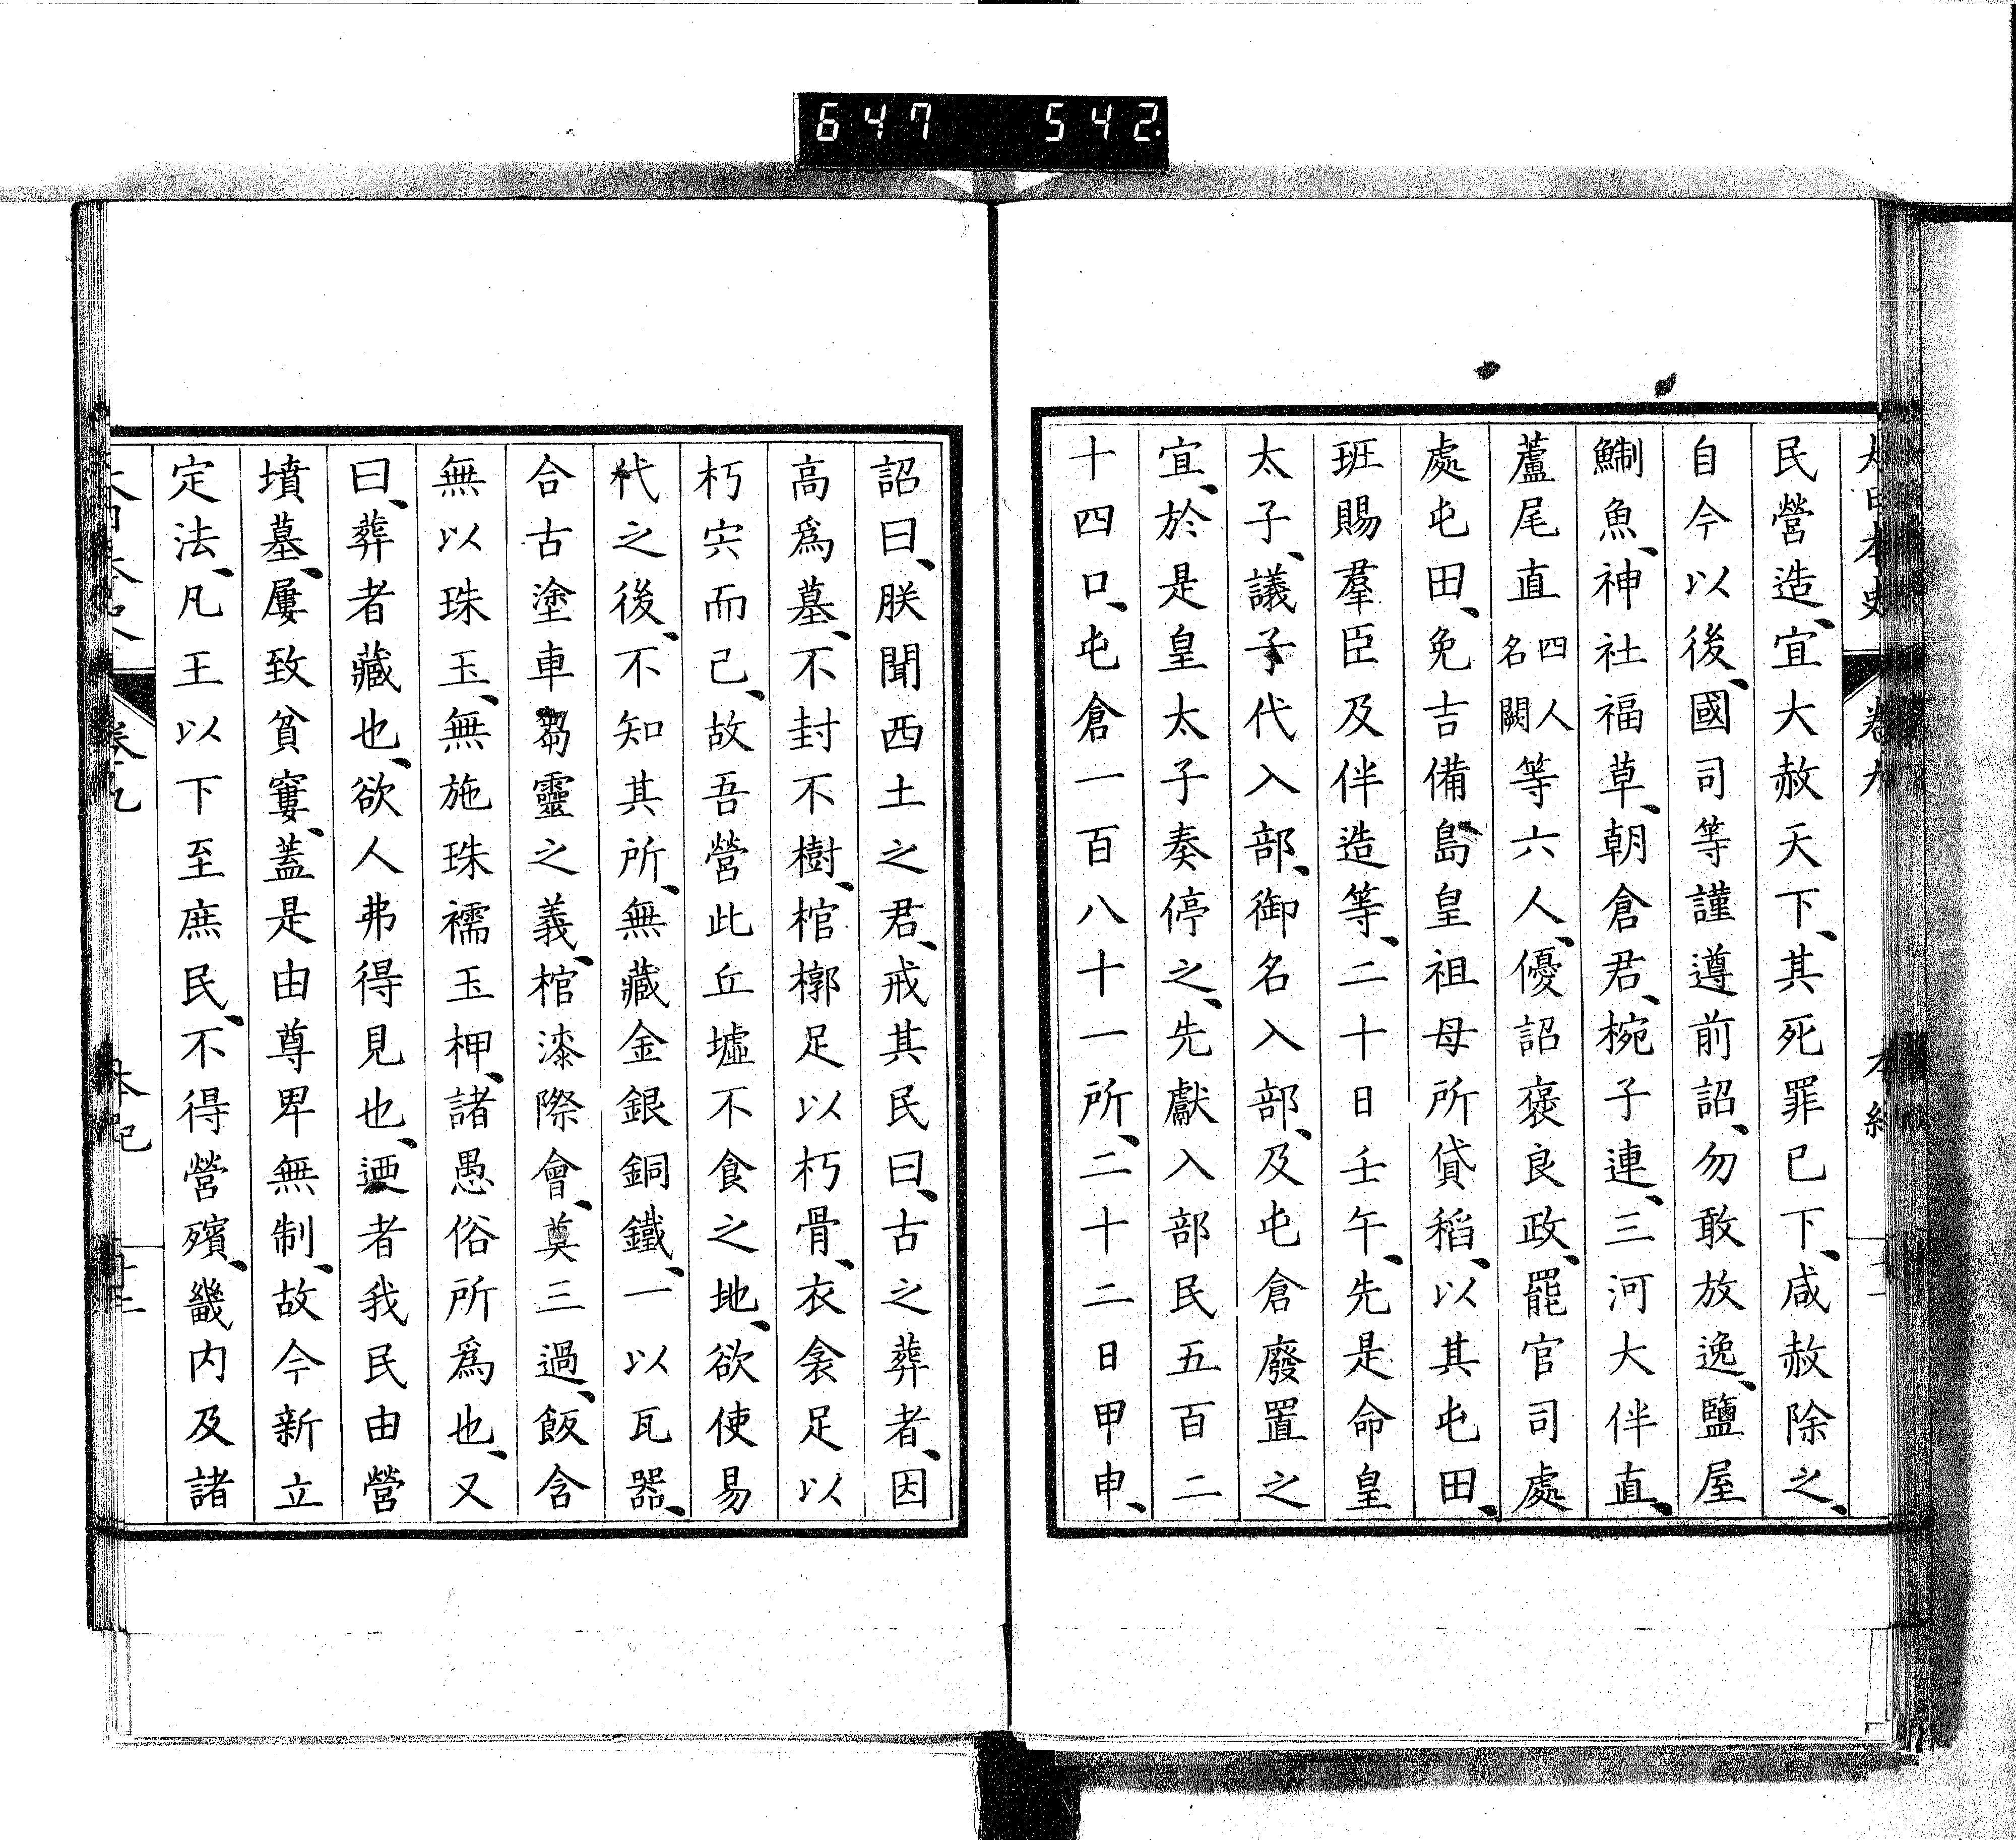 647 542
民營造、宜大赦天下、其死罪已下、咸赦除之、
自今以後、國司等謹遵前詔、勿敢放逸、鹽屋
鯯魚、神社福草、朝倉君、椀子連、三河大伴直、
蘆尾直四人名闕等六人、優詔褒良政、罷官司處
處屯田、免吉備島皇祖母所貸稻、以其屯田、
班賜羣臣及伴造等、二十日壬午、先是命皇
太子、議子代入部、御名入部、及屯倉廢置之
宜、於是皇太子奏停之、先獻入部民五百二
十四口、屯倉一百八十一所、二十二日甲申、
詔曰、朕聞西土之君、戒其民曰、古之葬者、因
高爲墓、不封不樹、棺槨足以朽骨、衣衾足以
朽宍而已、故吾營此丘墟不食之地、欲使易
代之後、不知其所、無藏金銀銅鐵、一以瓦器、
合古塗車芻靈之義、棺漆際會、奠三過、飯含
無以珠玉、無施珠襦玉柙、諸愚俗所爲也、又
曰、葬者藏也、欲人弗得見也、迺者我民由營
墳墓、屢致貧窶、蓋是由尊卑無制、故今新立
定法、凡王以下至庶民、不得營殯、畿内及諸